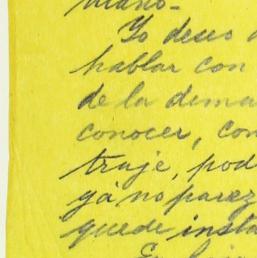 mano-
Yo deseo
hablar con
de la dema
conocer, con
traje, pod
ya no parez
quede insta